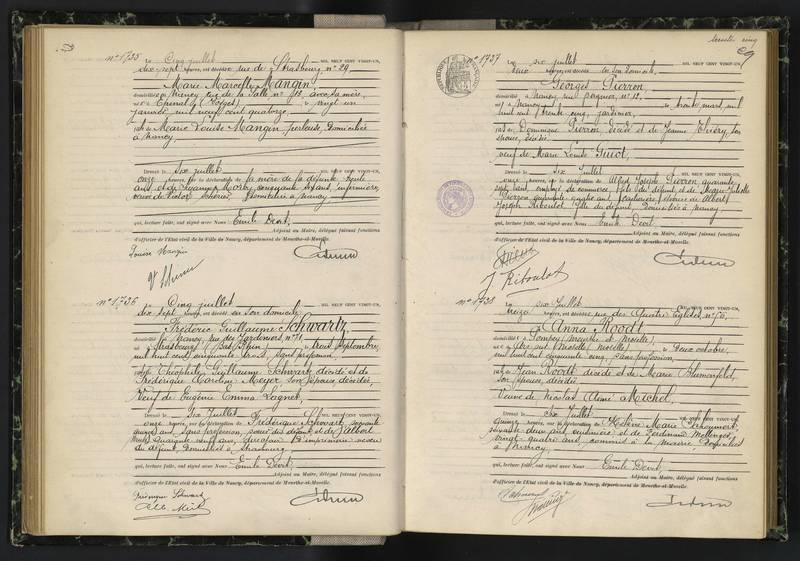 n° 1735 Le Cinq juillet MIL NEUF CENT VINGT-UN,
dix sept heures, est décédée rue de Strasbourg n° 29
Marie Marcelle Mangin,
domiciliée à Nancy, rue de la Salle n° 18, avec sa mère,
née à Épinal (Vosges), le vingt un
janvier mil neuf cent quatorze,
fille de Marie Louise Mangin, perleuse, domiciliée
à Nancy.
Dressé le Six juillet MIL NEUF CENT VINGT-UN,
onze heures, sur la déclaration de la mère de la défunte, trente
ans et de Suzanne soixante ans, infirmière,
domiciliée à Nancy
qui, lecture faite, ont signé avec Nous Emile Devit,
Adjoint au Maire, délégué faisant fonctions
d'officier de l'Etat civil de la Ville de Nancy, département de Meurthe-et-Moselle.
Louise Mangin
n° 1736 Le Cinq juillet MIL NEUF CENT VINGT-UN,
dix sept heures, est décédé en son domicile
Frédéric Guillaume Schwartz,
à Nancy, rue des Jardiniers, n° 71
né à Strasbourg (Bas-Rhin), le trois septembre
mil huit cent cinquante trois, sans profession,
fils de Théophile Guillaume Schwartz décédé et de
Frédérique Caroline Meyer, son épouse, décédée,
Veuf de Eugénie Emma Lagnet,
Dressé le Six Juillet MIL NEUF CENT VINGT-UN,
onze heures, sur la déclaration de Frédérique Schwart, soixante
quinze ans, sans profession, soeur du défunt et de Albert
quarante neuf ans, neveu
du défunt, domiciliés à Strasbourg
qui, lecture faite, ont signé avec Nous Emile Devit,
Adjoint au Maire, délégué faisant fonctions
d'officier de l'Etat civil de la Ville de Nancy, département de Meurthe-et-Moselle.
69
n° 1737 Le six juillet MIL NEUF CENT VINGT-UN,
deux heures, est décédé en son domicile,
Georges Pierron,
domicilié à Nancy, n° 12,
né à Nancy, le trente mars, mil
huit cent trente cinq, jardinier,
fils de Dominique Pierron décédé et de Jeanne Thiéry, son
épouse, décédée,
veuf de Marie Louise Guiot,
Dressé le Six Juillet MIL NEUF CENT VINGT-UN,
onze heures, sur la déclaration de Alfred Joseph Pierron quarante
sept ans, employé de commerce, fils du défunt, et de Juliette
Pierron quarante quatre ans, épouse de Albert
Joseph Riboulot, fille du défunt, domiciliés à Nancy
qui, lecture faite, ont signé avec Nous Emile Devit
Adjoint au Maire, délégué faisant fonctions
d'officier de l'Etat civil de la Ville de Nancy, département de Meurthe-et-Moselle.
J Riboulot
n° 1738 Le six Juillet MIL NEUF CENT VINGT-UN,
treize heures, est décédée rue des Quatre Eglises, n° 56,
Anna Roodt
domiciliée à Pompey (Meurthe et Moselle),
née à (Moselle), le deux octobre,
mil huit cent cinquante cinq, sans profession,
fille de Jean Roodt décédé et de Marie Blumenfeld,
son épouse, décédée,
Veuve de Nicolas René Michel,
Dressé le six Juillet MIL NEUF CENT VINGT-UN,
quinze heures, sur la déclaration de Hélène Marie
soixante deux ans, et de Ferdinand
vingt quatre ans, commis à la mairie, domiciliés
à Nancy
qui, lecture faite, ont signé avec Nous Emile Devit,
Adjoint au Maire, délégué faisant fonctions
d'officier de l'Etat civil de la Ville de Nancy, département de Meurthe-et-Moselle.